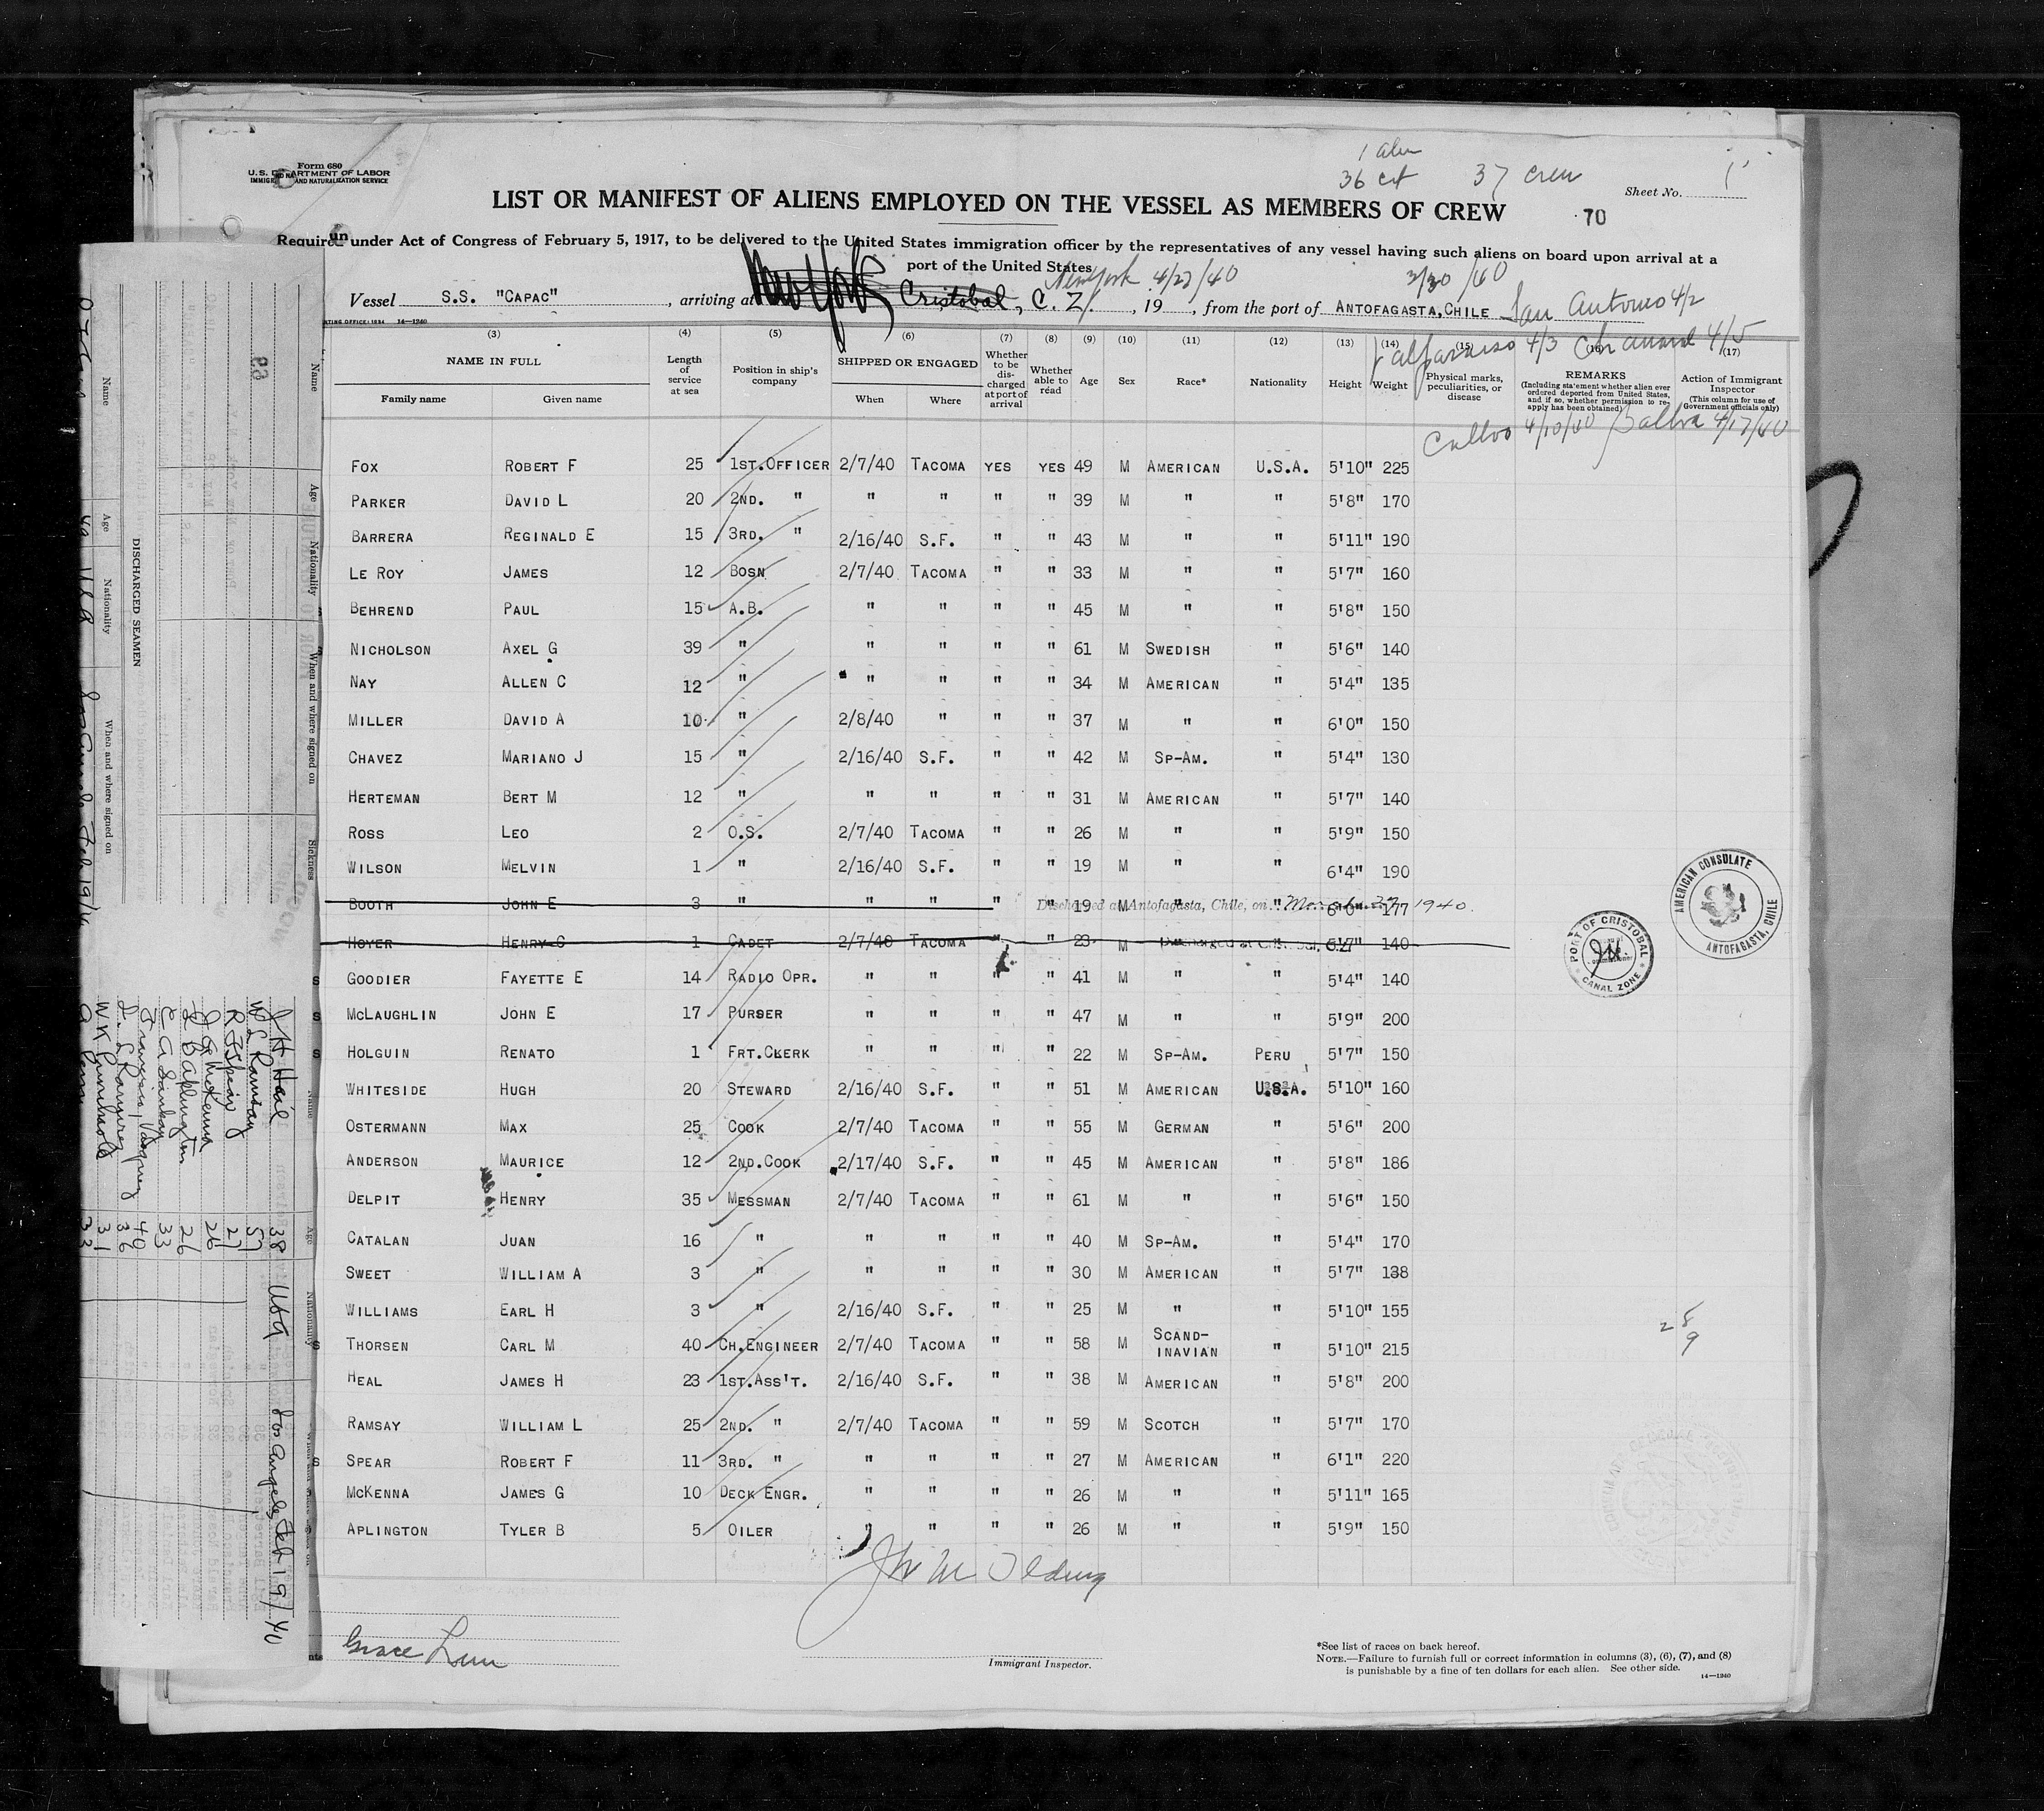 Form 680
U. S. DEPARTMENT OF LABOR
IMMIGRATION AND NATURALIZATION SERVICE
1 alien
36 cit 37 crew
Sheet No. 1
LIST OR MANIFEST OF ALIENS EMPLOYED ON THE VESSEL AS MEMBERS OF CREW
70
Required under Act of Congress of February 5, 1917, to be delivered to the United States immigration officer by the representatives of any vessel having such aliens on board upon arrival at a
port of the United States
New York 4/27/40 3/30/40
Vessel S.S. "CAPAC", arriving at New York Cristobal, C. Z., 19, from the port of ANTOFAGASTA, CHILE San Antonio 4/2
Valparaiso 4/3 Chanaral 4/5
(3) (4) (5) (6) (7) (8) (9) (10) (11) (12) (13) (14) (15) (16) (17)
NAME IN FULL
Family name Given name
Length of service at sea
Position in ship's company
SHIPPED OR ENGAGED
When Where
Whether to be discharged at port of arrival
Whether able to read
Age
Sex
Race*
Nationality
Height
Weight
Physical marks, peculiarities, or disease
REMARKS
(Including statement whether alien ever ordered deported from United States, and if so, whether permission to reapply has been obtained)
Action of Immigrant Inspector
(This column for use of Government officials only)
Callao 4/10/40 Balboa 4/17/40
FOX ROBERT F 25 1ST.OFFICER 2/7/40 TACOMA YES YES 49 M AMERICAN U.S.A. 5'10" 225
PARKER DAVID L 20 2ND. " " " " " 39 M " " 5'8" 170
BARRERA REGINALD E 15 3RD. " 2/16/40 S.F. " " 43 M " " 5'11" 190
LE ROY JAMES 12 BOSN 2/7/40 TACOMA " " 33 M " " 5'7" 160
BEHREND PAUL 15 A.B. " " " " 45 M " " 5'8" 150
NICHOLSON AXEL G 39 " " " " " 61 M SWEDISH " 5'6" 140
NAY ALLEN C 12 " " " " " 34 M AMERICAN " 5'4" 135
MILLER DAVID A 10 " 2/8/40 " " " 37 M " " 6'0" 150
CHAVEZ MARIANO J 15 " 2/16/40 S.F. " " 42 M SP-AM. " 5'4" 130
HERTEMAN BERT M 12 " " " " " 31 M AMERICAN " 5'7" 140
ROSS LEO 2 O.S. 2/7/40 TACOMA " " 26 M " " 5'9" 150
WILSON MELVIN 1 " 2/16/40 S.F. " " 19 M " " 6'4" 190
BOOTH JOHN E 3 " " " " " 19 M " " 6'0" 177
Discharged at Antofagasta, Chile, on March 27 1940.
HOYER HENRY C 1 CADET 2/7/40 TACOMA " " 23 M 5'7" 140
Discharged at Cristobal, C.Z.
GOODIER FAYETTE E 14 RADIO OPR. " " " " 41 M " " 5'4" 140
MCLAUGHLIN JOHN E 17 PURSER " " " " 47 M " " 5'9" 200
HOLGUIN RENATO 1 FRT.CLERK " " " " 22 M SP-AM. PERU 5'7" 150
WHITESIDE HUGH 20 STEWARD 2/16/40 S.F. " " 51 M AMERICAN U.S.A. 5'10" 160
OSTERMANN MAX 25 COOK 2/7/40 TACOMA " " 55 M GERMAN " 5'6" 200
ANDERSON MAURICE 12 2ND.COOK 2/17/40 S.F. " " 45 M AMERICAN " 5'8" 186
DELPIT HENRY 35 MESSMAN 2/7/40 TACOMA " " 61 M " " 5'6" 150
CATALAN JUAN 16 " " " " " 40 M SP-AM. " 5'4" 170
SWEET WILLIAM A 3 " " " " " 30 M AMERICAN " 5'7" 138
WILLIAMS EARL H 3 " 2/16/40 S.F. " " 25 M " " 5'10" 155
THORSEN CARL M 40 CH.ENGINEER 2/7/40 TACOMA " " 58 M SCAND-INAVIAN " 5'10" 215
HEAL JAMES H 23 1ST.ASS'T. 2/16/40 S.F. " " 38 M AMERICAN " 5'8" 200
RAMSAY WILLIAM L 25 2ND. " 2/7/40 TACOMA " " 59 M SCOTCH " 5'7" 170
SPEAR ROBERT F 11 3RD. " " " " " 27 M AMERICAN " 6'1" 220
MCKENNA JAMES G 10 DECK ENGR. " " " " 26 M " " 5'11" 165
APLINGTON TYLER B 5 OILER " " " " 26 M " " 5'9" 150
AMERICAN CONSULATE
ANTOFAGASTA, CHILE
PORT OF CRISTOBAL
CANAL ZONE
28
9
Grace Line
Immigrant Inspector.
*See list of races on back hereof.
NOTE.—Failure to furnish full or correct information in columns (3), (6), (7), and (8)
is punishable by a fine of ten dollars for each alien. See other side.
14—1240
DISCHARGED SEAMEN
Name Age Nationality When and where signed on
Name Age Nationality When and where signed on Sickness
J H Heal 38 USA Los Angeles Feb 19/40
W L Ramsay 59
R F Spear 27
J G McKenna 26
T B Aplington 26
33
Francisco Vasquez 40
L. L Ramirez 36
31
33